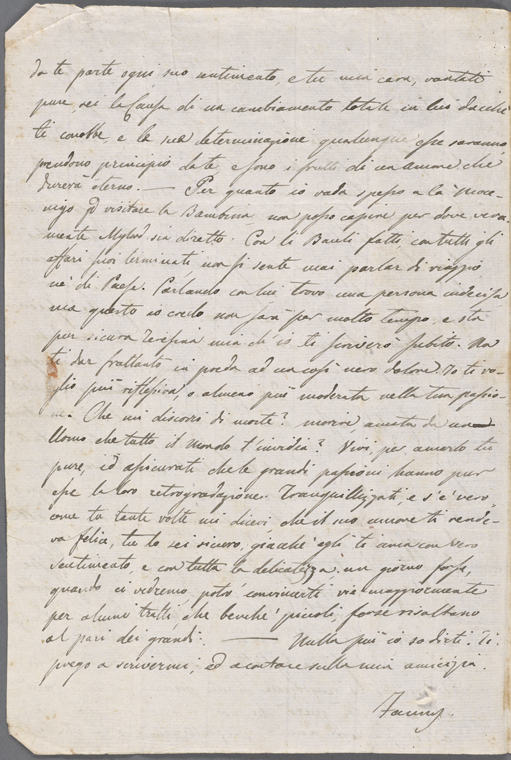 da te parte ogni suo sentimento, e tu mia cara, vantati
pure, sei la Causa di un cambiamento totale in lui dacchè
ti conobbe, e le sue determinazione qualunque esse saranno
prendono principio da te e sono i frutti di un amore che
durerà eterno. — Per quanto io vada spesso a la Moce-
nigo ad visitare la Bambina, non posso capire per dove vera-
mente Mylord sia diretto. Con li Bauli fatti, con tutti gli
affari suoi terminati, non si sente mai parlar di viaggio
nè di Paese. Parlando con lui trovo una persona indecisa
ma questo io credo non sarà per molto tempo, e stà
pur sicura Teresina mia ch'io ti scriverò subito. Non
ti dar frattanto in preda ad un così nero dolore. Io ti vo-
glio più riflessiva, o almeno più moderata nella tua passio-
ne. Che mi discorri di morte? morire amata da un
Uomo che tutto il mondo t'invidia? Vivi, per amarlo tu
pure, ed assicurati che le grandi passioni hanno pur
esse la loro retrogradazione. Tranquillizzati, e s'è vero
come tu tante volte mi dicevi che il suo amore ti rende-
va felice, tu lo sei sicuro, giacchè egli ti ama con vero
Sentimento, e con tutta la delicatezza; un giorno forse,
quando ci vedremo, potrò convincerti viemaggiormente
per alcuni tratti, che benchè piccoli, forse risaltano
al pari dei grandi. — Nulla più io so dirti. Ti
prego a scrivermi, ed a contare sulla mia amicizia.
Fanny.